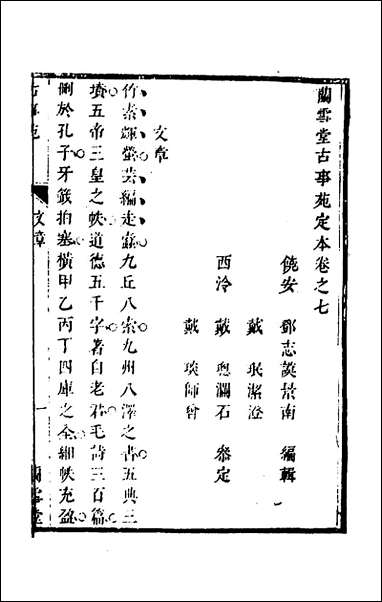 蘭雪堂古事苑定本卷之七
饒安 鄧志謨景南 編輯
戴 珉潔澄
西泠 戴 瀾石 叅定
戴 琰師曾
文章
竹素輝螢芸編走蠧九丘八索九州八澤之書五典三
墳五帝三皇之帙道德五千字著自老君毛詩三百篇
刪於孔子牙籤拍塞橫甲乙丙丁四庫之全緗帙充盈
古事苑
文章
一
蘭雪堂